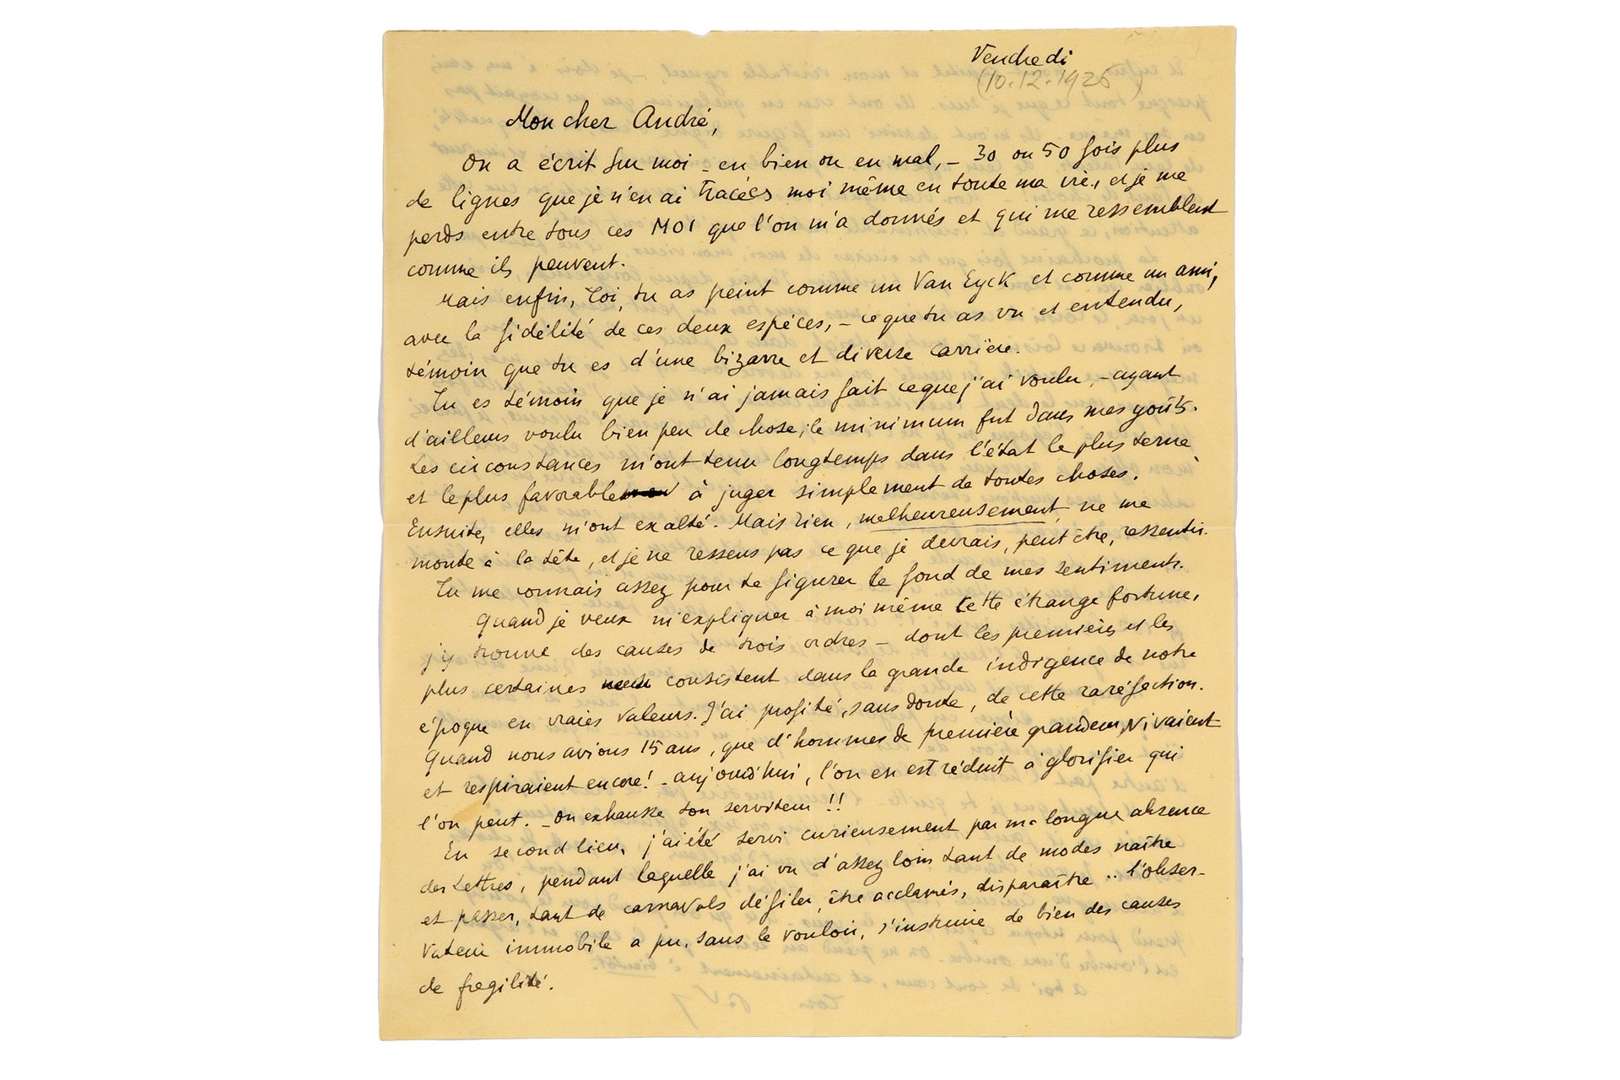 Vendredi
(10.12.1925)
Mon cher André,
On a écrit sur moi - en bien ou en mal, - 30 ou 50 fois plus
de lignes que je n'en ai tracées moi même en toute ma vie, et je me
perds entre tous ces MOI que l'on m'a donnés et qui me ressemblent
comme ils peuvent.
Mais enfin, Toi, tu as peint comme un Van Eyck et comme un ami,
avec la fidélité de ces deux espèces, - ce que tu as vu et entendu,
témoin que tu es d'une bizarre et diverse carrière.
Tu es témoin que je n'ai jamais fait ce que j'ai voulu, - ayant
d'ailleurs voulu bien peu de chose; le minimum fut dans mes goûts.
Les circonstances m'ont tenu longtemps dans l'état le plus terne
et le plus favorable à juger simplement de toutes choses.
Ensuite, elles m'ont exalté. Mais rien, malheureusement, ne me
monte à la tête, et je ne ressens pas ce que je devrais, peut être, ressentir.
Tu me connais assez pour te figurer le fond de mes sentiments.
Quand je veux m'expliquer à moi même cette étrange fortune,
j'y trouve des causes de trois ordres - dont les premières et les
plus certaines consistent dans la grande indigence de notre
époque en vraies valeurs. J'ai profité, sans doute, de cette raréfaction.
Quand nous avions 15 ans, que d'hommes de première grandeur vivaient
et respiraient encore! - aujourd'hui, l'on en est réduit à glorifier qui
l'on peut. - On exhausse ton serviteur!!
En second lieu, j'ai été servi curieusement par ma longue absence
des Lettres, pendant laquelle j'ai vu d'assez loin tant de modes naître
et passer, tant de carnavals défiler, être acclamés, disparaître .. l'obser-
vateur immobile a pu, sans le vouloir, s'instruire de bien des causes
de fragilité.